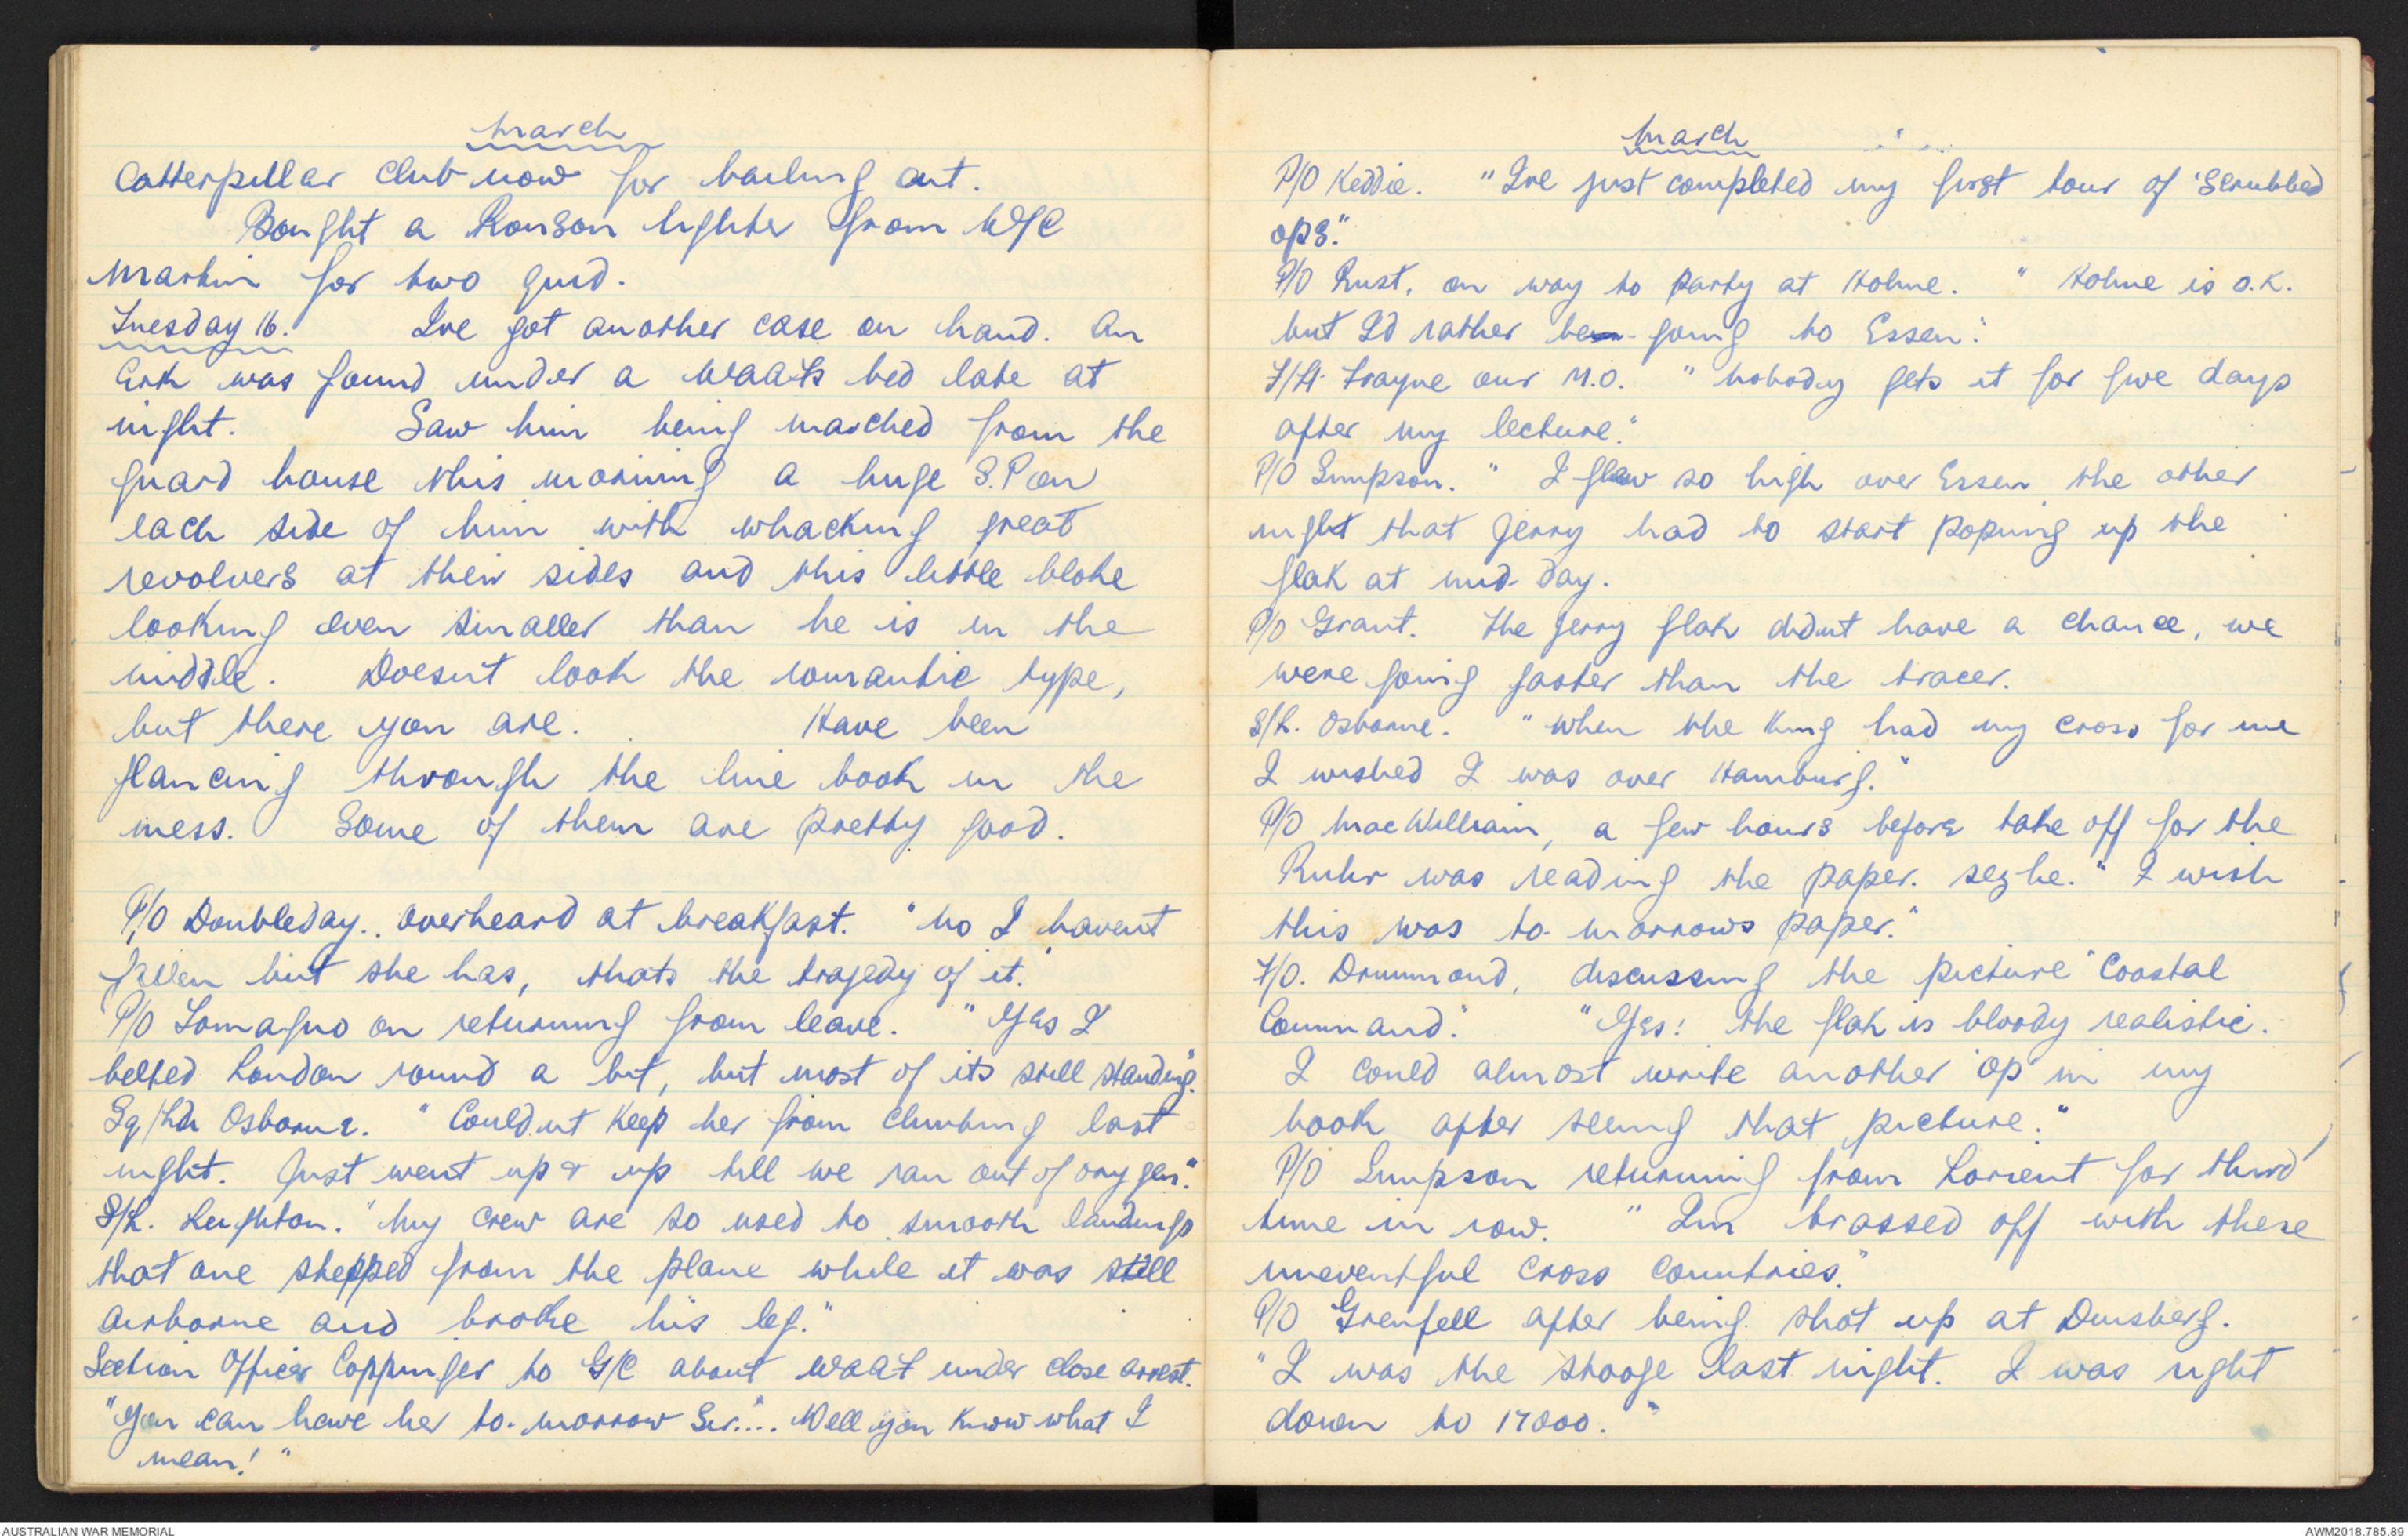 March
Catterpillar club now for bailing out.
Bought a Ronson lighter from W/C
Martin for two quid.
Tuesday 16. Ive got another case on hand. An
Erk was found under a WAAFs bed late at
night. Saw him being marched from the
guard house this morning a huge S.P on
each side of him with whacking great
revolvers at their sides and this little bloke
looking even smaller than he is in the
middle. Doesn't look the romantic type,
but there you are. Have been
glancing through the line book in the
mess. Some of them are pretty good.
P/O Doubleday.. overheard at breakfast. "No I havent
fallen but she has, thats the tragedy of it."
P/O Lomagno on returning from leave. "Yes I
belted London round a bit, but most of its still standing."
Sq/Ldr Osborne. "Couldnt keep her from climbing last
night. Just went up & up till we ran out of oxygen."
S/L. Leighton. "My crew are so used to smooth landings
that one stepped from the plane while it was still
airborne and broke his leg."
Section Officer Coppinger to G/C about WAAF under close arrest.
"You can have her to-morrow Sir.... Well you know what I
mean!"
March
P/O Keddie. "Ive just completed my first tour of 'scrubbed
ops."
P/O Rust, on way to party at Holme. "Holme is O.K.
but Id rather be going to Essen."
F/Lt. Trayne our M.O. "Nobody gets it for five days
after my lecture."
P/O Simpson. "I flew so high over Essen the other
night that Jerry had to start poping up the
flak at mid-day.
P/O Grant. The Jerry flak didnt have a chance, we
were going faster than the tracer.
S/L. Osborne. "When the King had my cross for me
I wished I was over Hamburg."
P/O MacWilliam, a few hours before take off for the
Ruhr was reading the paper. sez he. "I wish
this was to-morrows paper."
F/O. Drummond, discussing the picture "Coastal
Command." "Yes! The flak is bloody realistic.
I could almost write another 'op' in my
book after seeing that picture."
P/O Simpson returning from Lorient for third
time in row. "Im brassed off with these
uneventful cross countries."
P/O Grenfell after being shot up at Duisberg.
"I was the stooge last night. I was right
down to 17000."
AUSTRALIAN WAR MEMORIAL
AWM2018.785.89